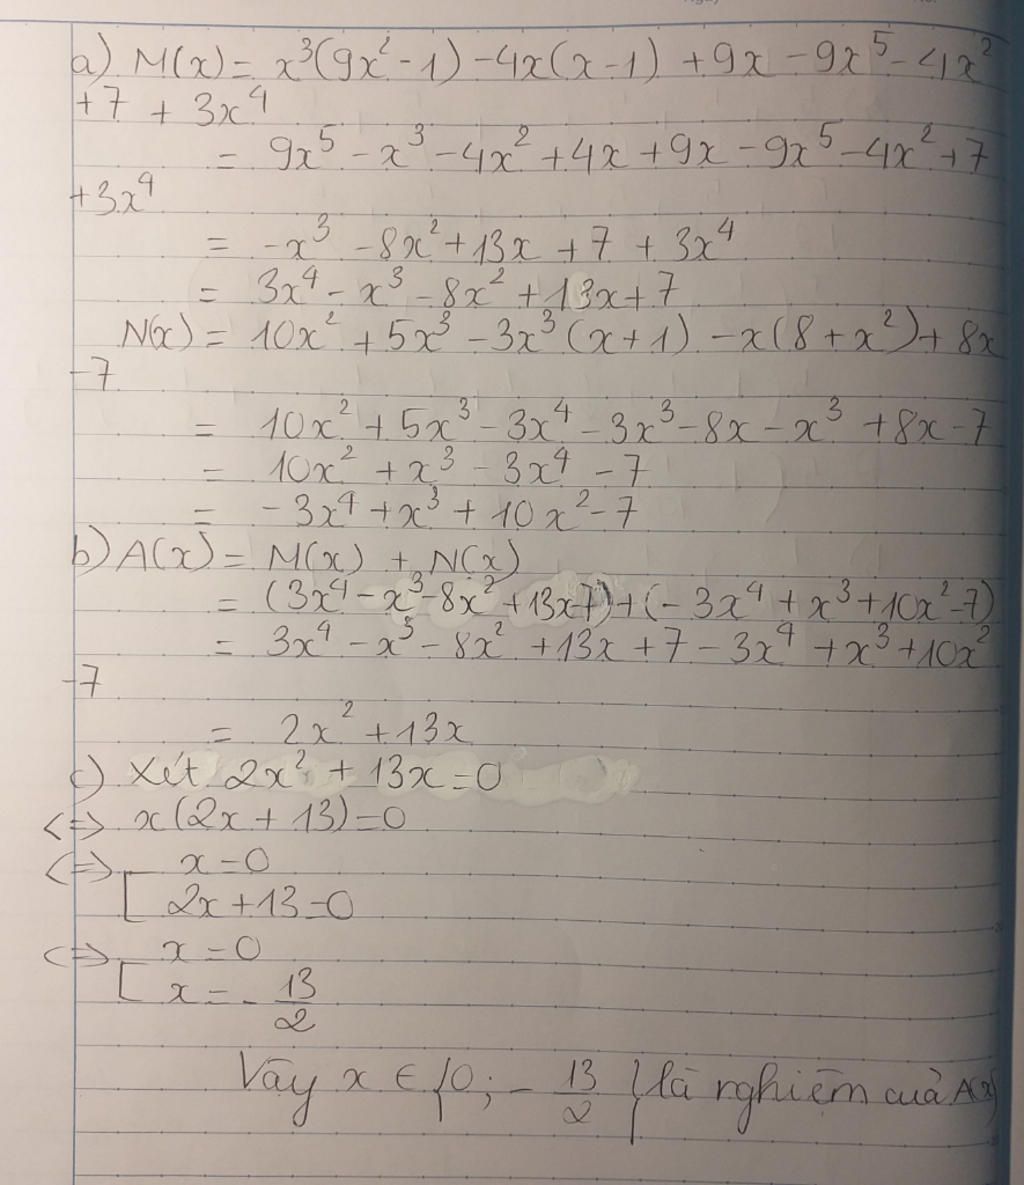 a) M(x) = x³(9x² - 1) - 4x(x - 1) + 9x - 9x⁵ - 4x²
+ 7 + 3x⁴
= 9x⁵ - x³ - 4x² + 4x + 9x - 9x⁵ - 4x² + 7
+ 3x⁴
= -x³ - 8x² + 13x + 7 + 3x⁴
= 3x⁴ - x³ - 8x² + 13x + 7
N(x) = 10x² + 5x³ - 3x³(x + 1) - x(8 + x²) + 8x
- 7
= 10x² + 5x³ - 3x⁴ - 3x³ - 8x - x³ + 8x - 7
= 10x² + x³ - 3x⁴ - 7
= -3x⁴ + x³ + 10x² - 7
b) A(x) = M(x) + N(x)
= (3x⁴ - x³ - 8x² + 13x + 7) + (-3x⁴ + x³ + 10x² - 7)
= 3x⁴ - x³ - 8x² + 13x + 7 - 3x⁴ + x³ + 10x²
- 7
= 2x² + 13x
c) Xét 2x² + 13x = 0
<=> x(2x + 13) = 0
<=> [ x = 0
2x + 13 = 0
<=> [ x = 0
x = - 13/2
Vậy x ∈ {0; - 13/2} là nghiệm của A(x)